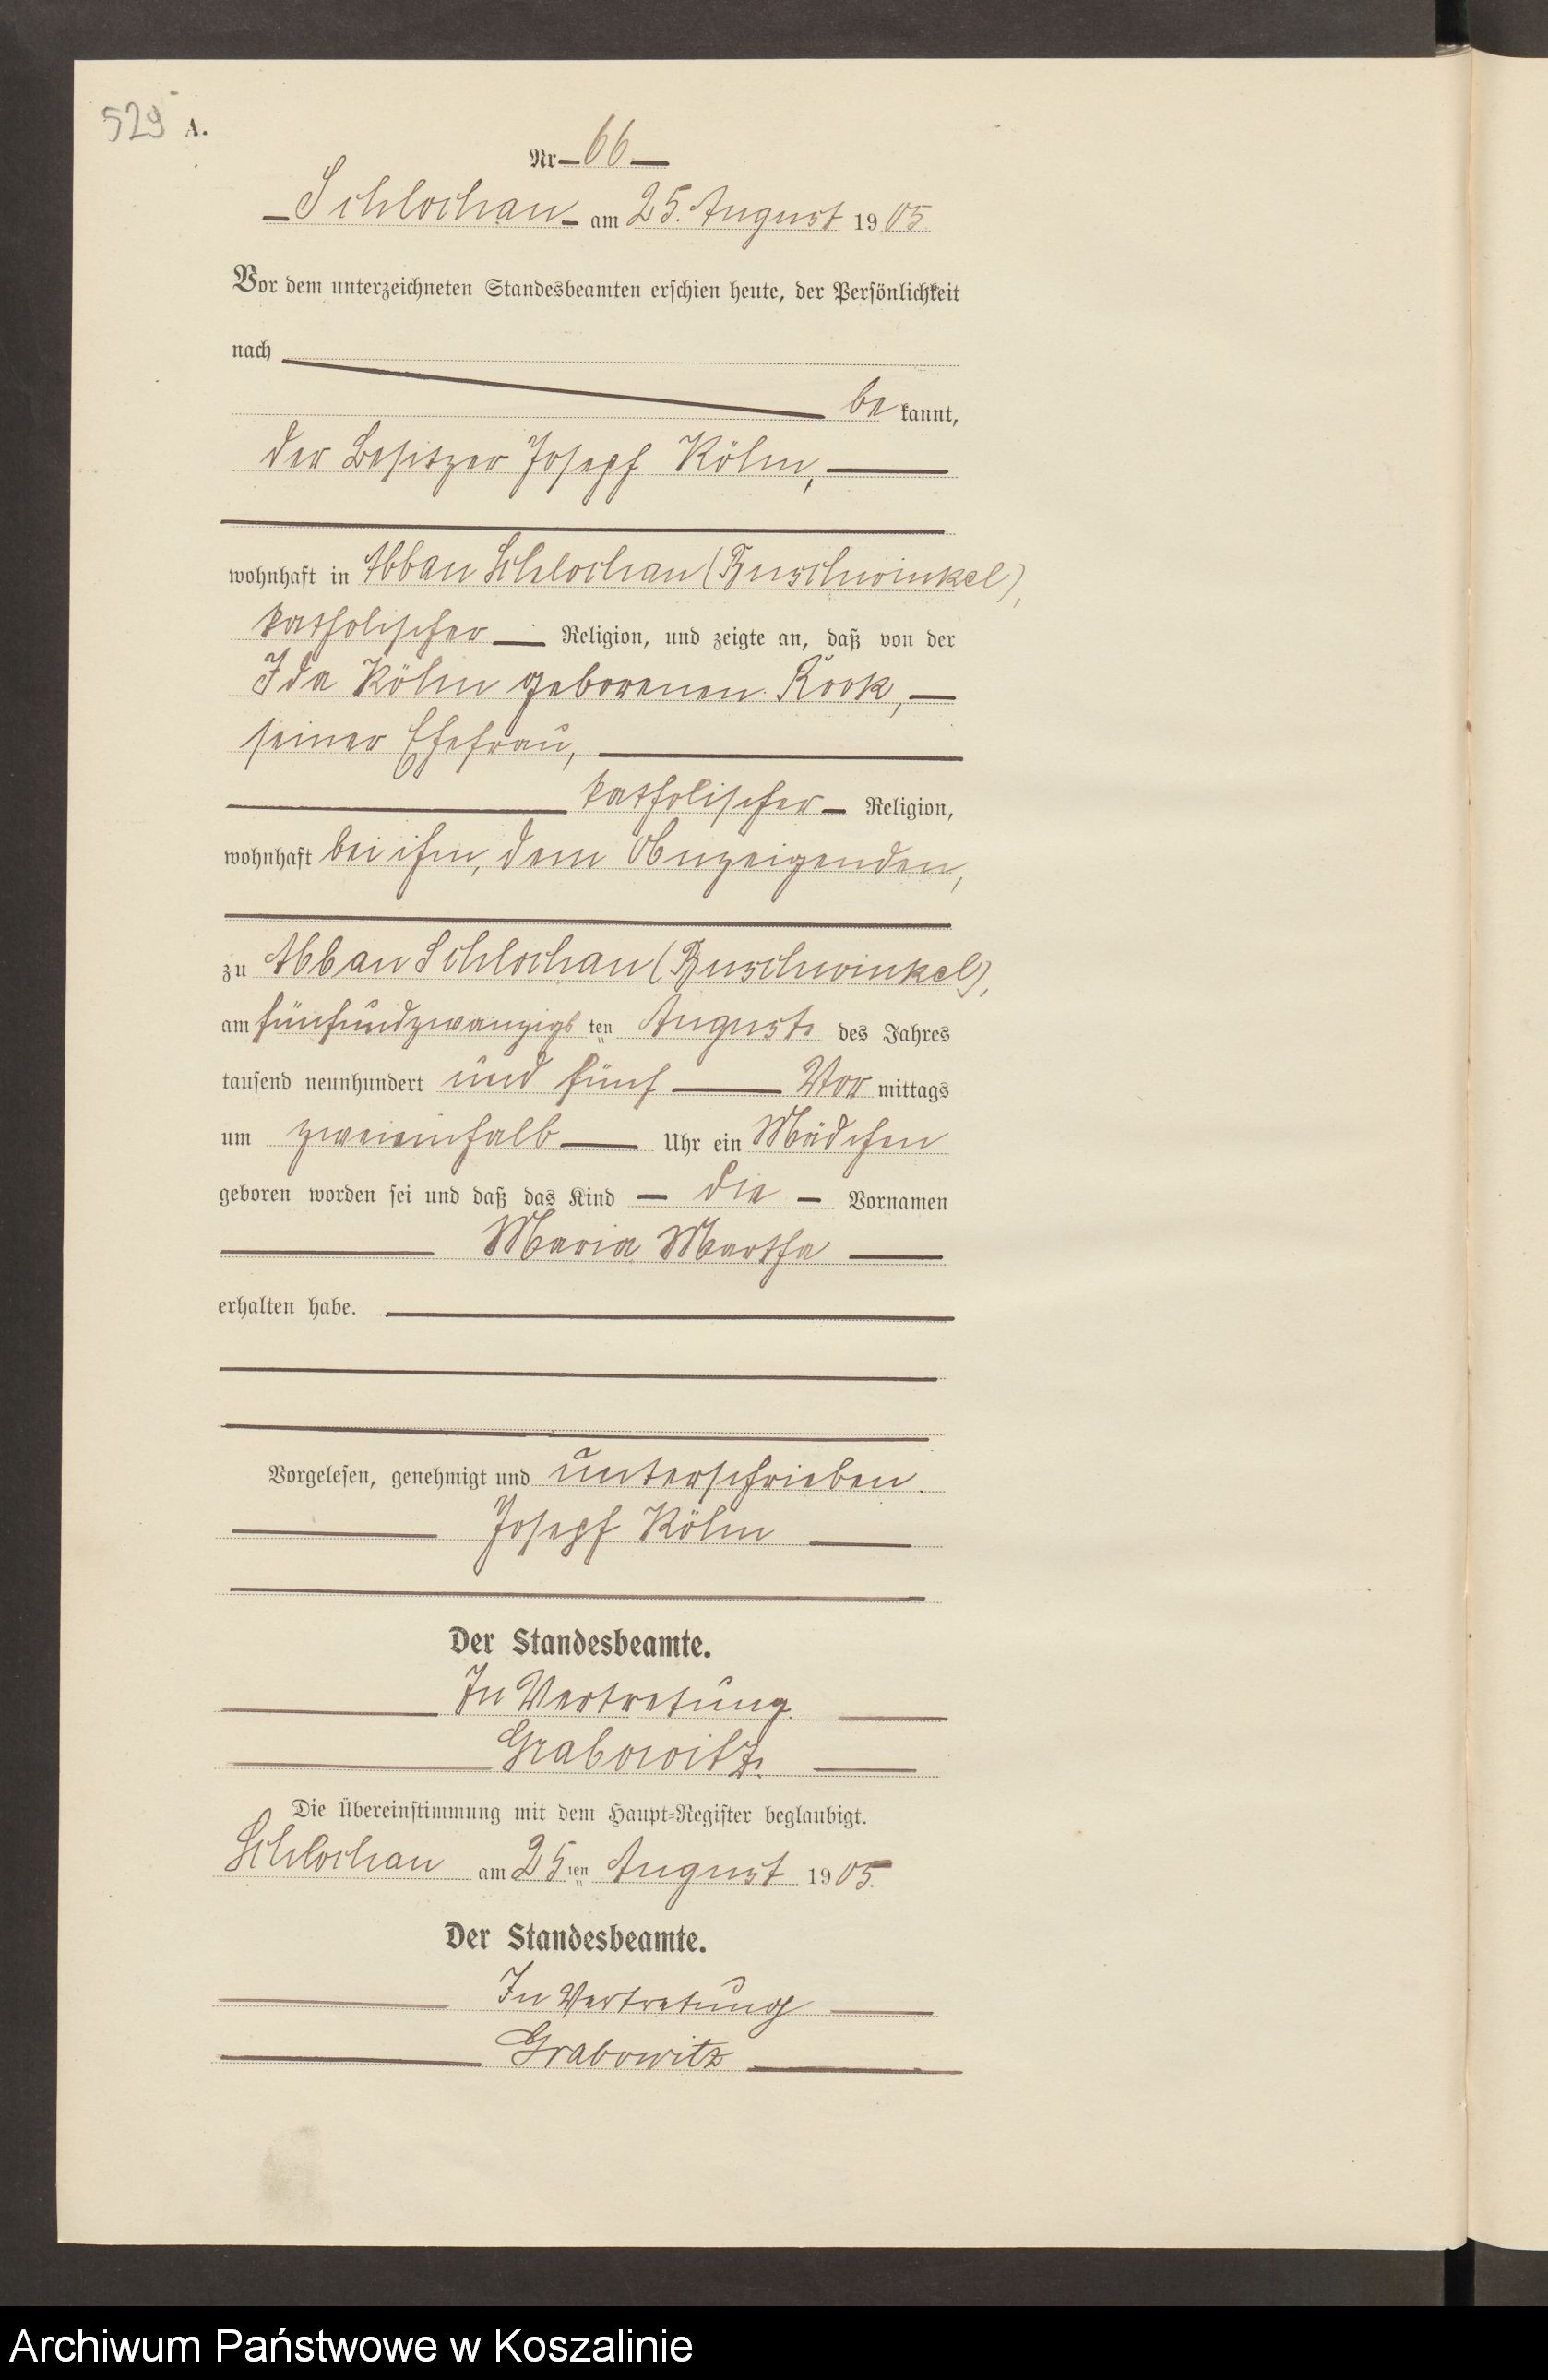 529 A.
Nr 66
Schlochau am 25. August 1905.
Vor dem unterzeichneten Standesbeamten erschien heute, der Persönlichkeit
nach
be kannt,
der Besitzer Joseph Kölm,
wohnhaft in Abbau Schlochau (Buschwinkel),
katholischer Religion, und zeigte an, daß von der
Ida Kölm geborenen Kook,
seiner Ehefrau,
katholischer Religion,
wohnhaft bei ihm, dem Anzeigenden,
zu Abbau Schlochau (Buschwinkel),
am fünfundzwanzigsten August des Jahres
tausend neunhundert und fünf Vor mittags
um zweieinhalb Uhr ein Mädchen
geboren worden sei und daß das Kind die Vornamen
Maria Martha
erhalten habe.
Vorgelesen, genehmigt und unterschrieben.
Joseph Kölm
Der Standesbeamte.
In Vertretung.
Grabowitz.
Die Übereinstimmung mit dem Haupt-Register beglaubigt.
Schlochau am 25ten August 1905.
Der Standesbeamte.
In Vertretung
Grabowitz
Archiwum Państwowe w Koszalinie